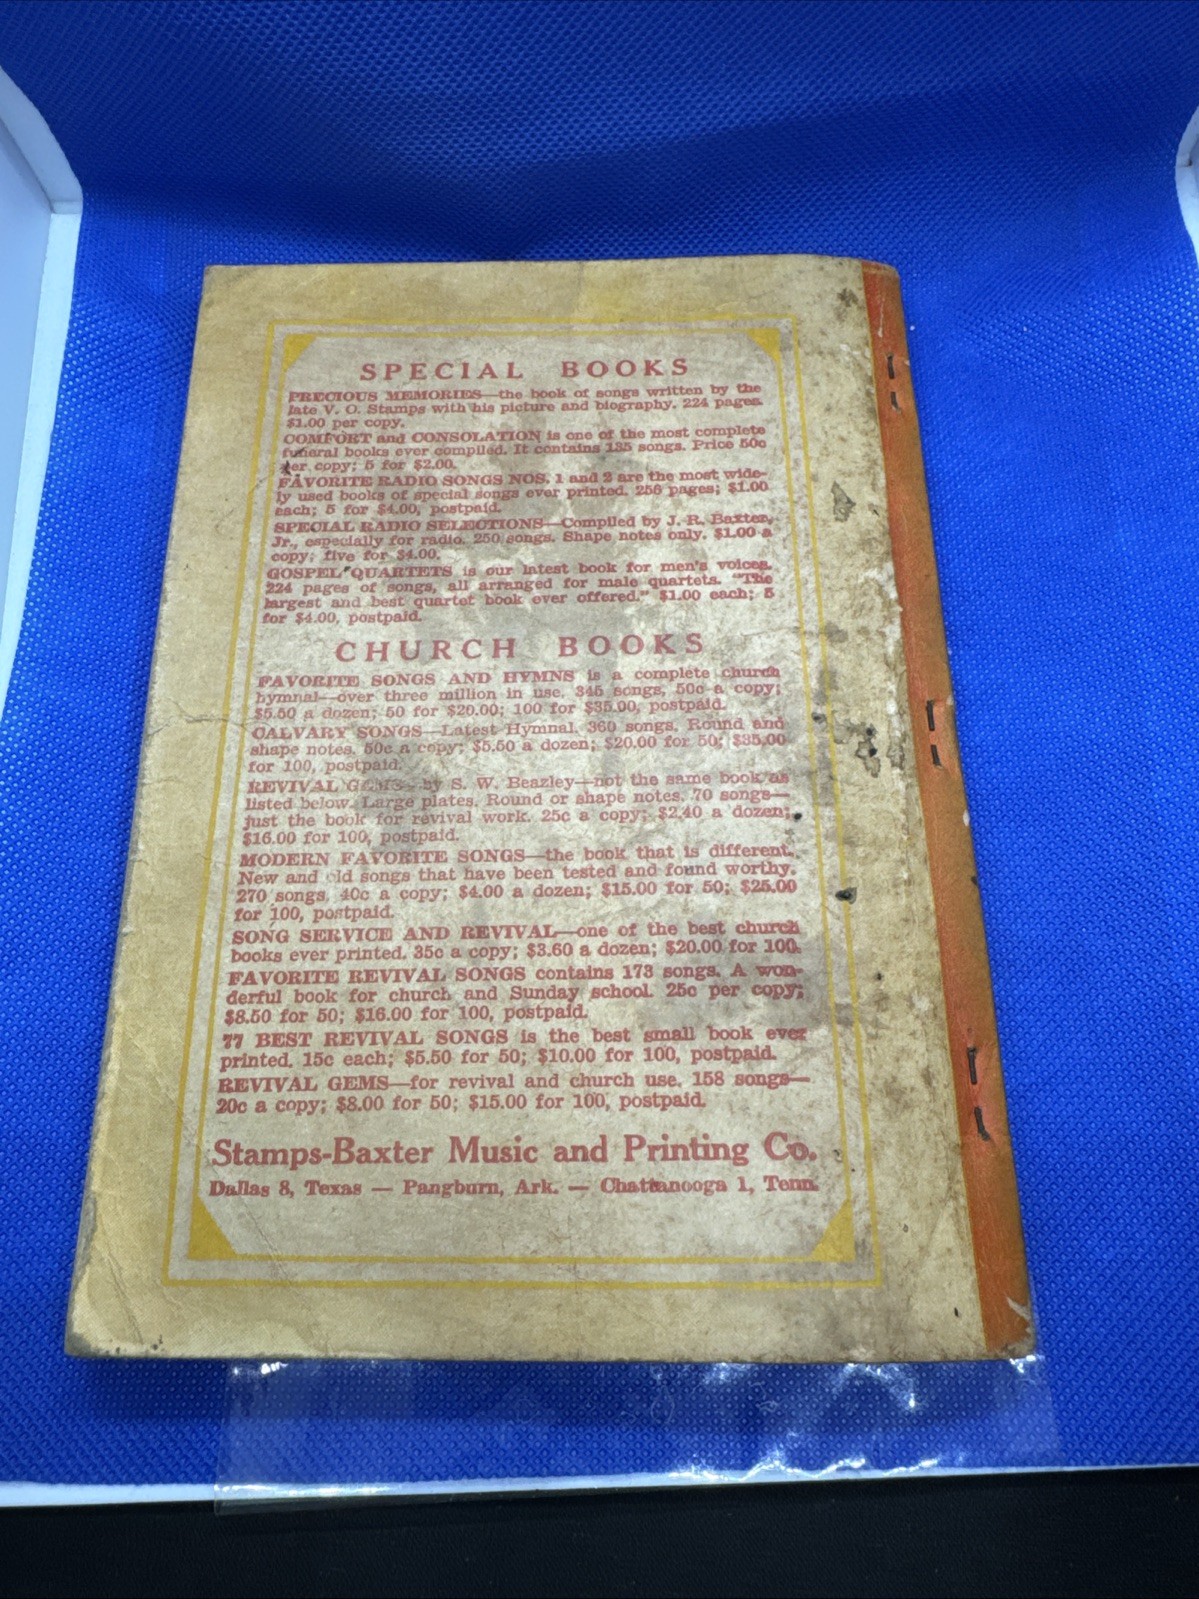 SPECIAL BOOKS
PRECIOUS MEMORIES—the book of songs written by the
late V. O. Stamps with his picture and biography. 224 pages.
$1.00 per copy.
COMFORT and CONSOLATION is one of the most complete
funeral books ever compiled. It contains 135 songs. Price 50c
per copy; 5 for $2.00.
FAVORITE RADIO SONGS NOS. 1 and 2 are the most wide-
ly used books of special songs ever printed. 256 pages; $1.00
each; 5 for $4.00, postpaid.
SPECIAL RADIO SELECTIONS—Compiled by J. R. Baxter,
Jr., especially for radio. 250 songs. Shape notes only. $1.00 a
copy; five for $4.00.
GOSPEL QUARTETS is our latest book for men's voices.
224 pages of songs, all arranged for male quartets. "The
largest and best quartet book ever offered." $1.00 each; 5
for $4.00, postpaid.
CHURCH BOOKS
FAVORITE SONGS AND HYMNS is a complete church
hymnal—over three million in use. 345 songs, 50c a copy;
$5.50 a dozen; 50 for $20.00; 100 for $35.00, postpaid.
CALVARY SONGS—Latest Hymnal. 360 songs. Round and
shape notes. 50c a copy; $5.50 a dozen; $20.00 for 50; $35.00
for 100, postpaid.
REVIVAL GEMS—by S. W. Beazley—not the same book as
listed below. Large plates. Round or shape notes. 70 songs—
just the book for revival work. 25c a copy; $2.40 a dozen;
$16.00 for 100, postpaid.
MODERN FAVORITE SONGS—the book that is different.
New and old songs that have been tested and found worthy.
270 songs. 40c a copy; $4.00 a dozen; $15.00 for 50; $25.00
for 100, postpaid.
SONG SERVICE AND REVIVAL—one of the best church
books ever printed. 35c a copy; $3.60 a dozen; $20.00 for 100.
FAVORITE REVIVAL SONGS contains 173 songs. A won-
derful book for church and Sunday school. 25c per copy;
$8.50 for 50; $16.00 for 100, postpaid.
77 BEST REVIVAL SONGS is the best small book ever
printed. 15c each; $5.50 for 50; $10.00 for 100, postpaid.
REVIVAL GEMS—for revival and church use. 158 songs—
20c a copy; $8.00 for 50; $15.00 for 100, postpaid.
Stamps-Baxter Music and Printing Co.
Dallas 8, Texas — Pangburn, Ark. — Chattanooga 1, Tenn.